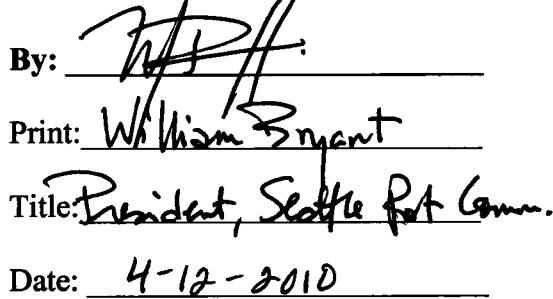 By:
Print: William Bryant
Title: President, Seattle Port Comm.
Date: 4-12-2010